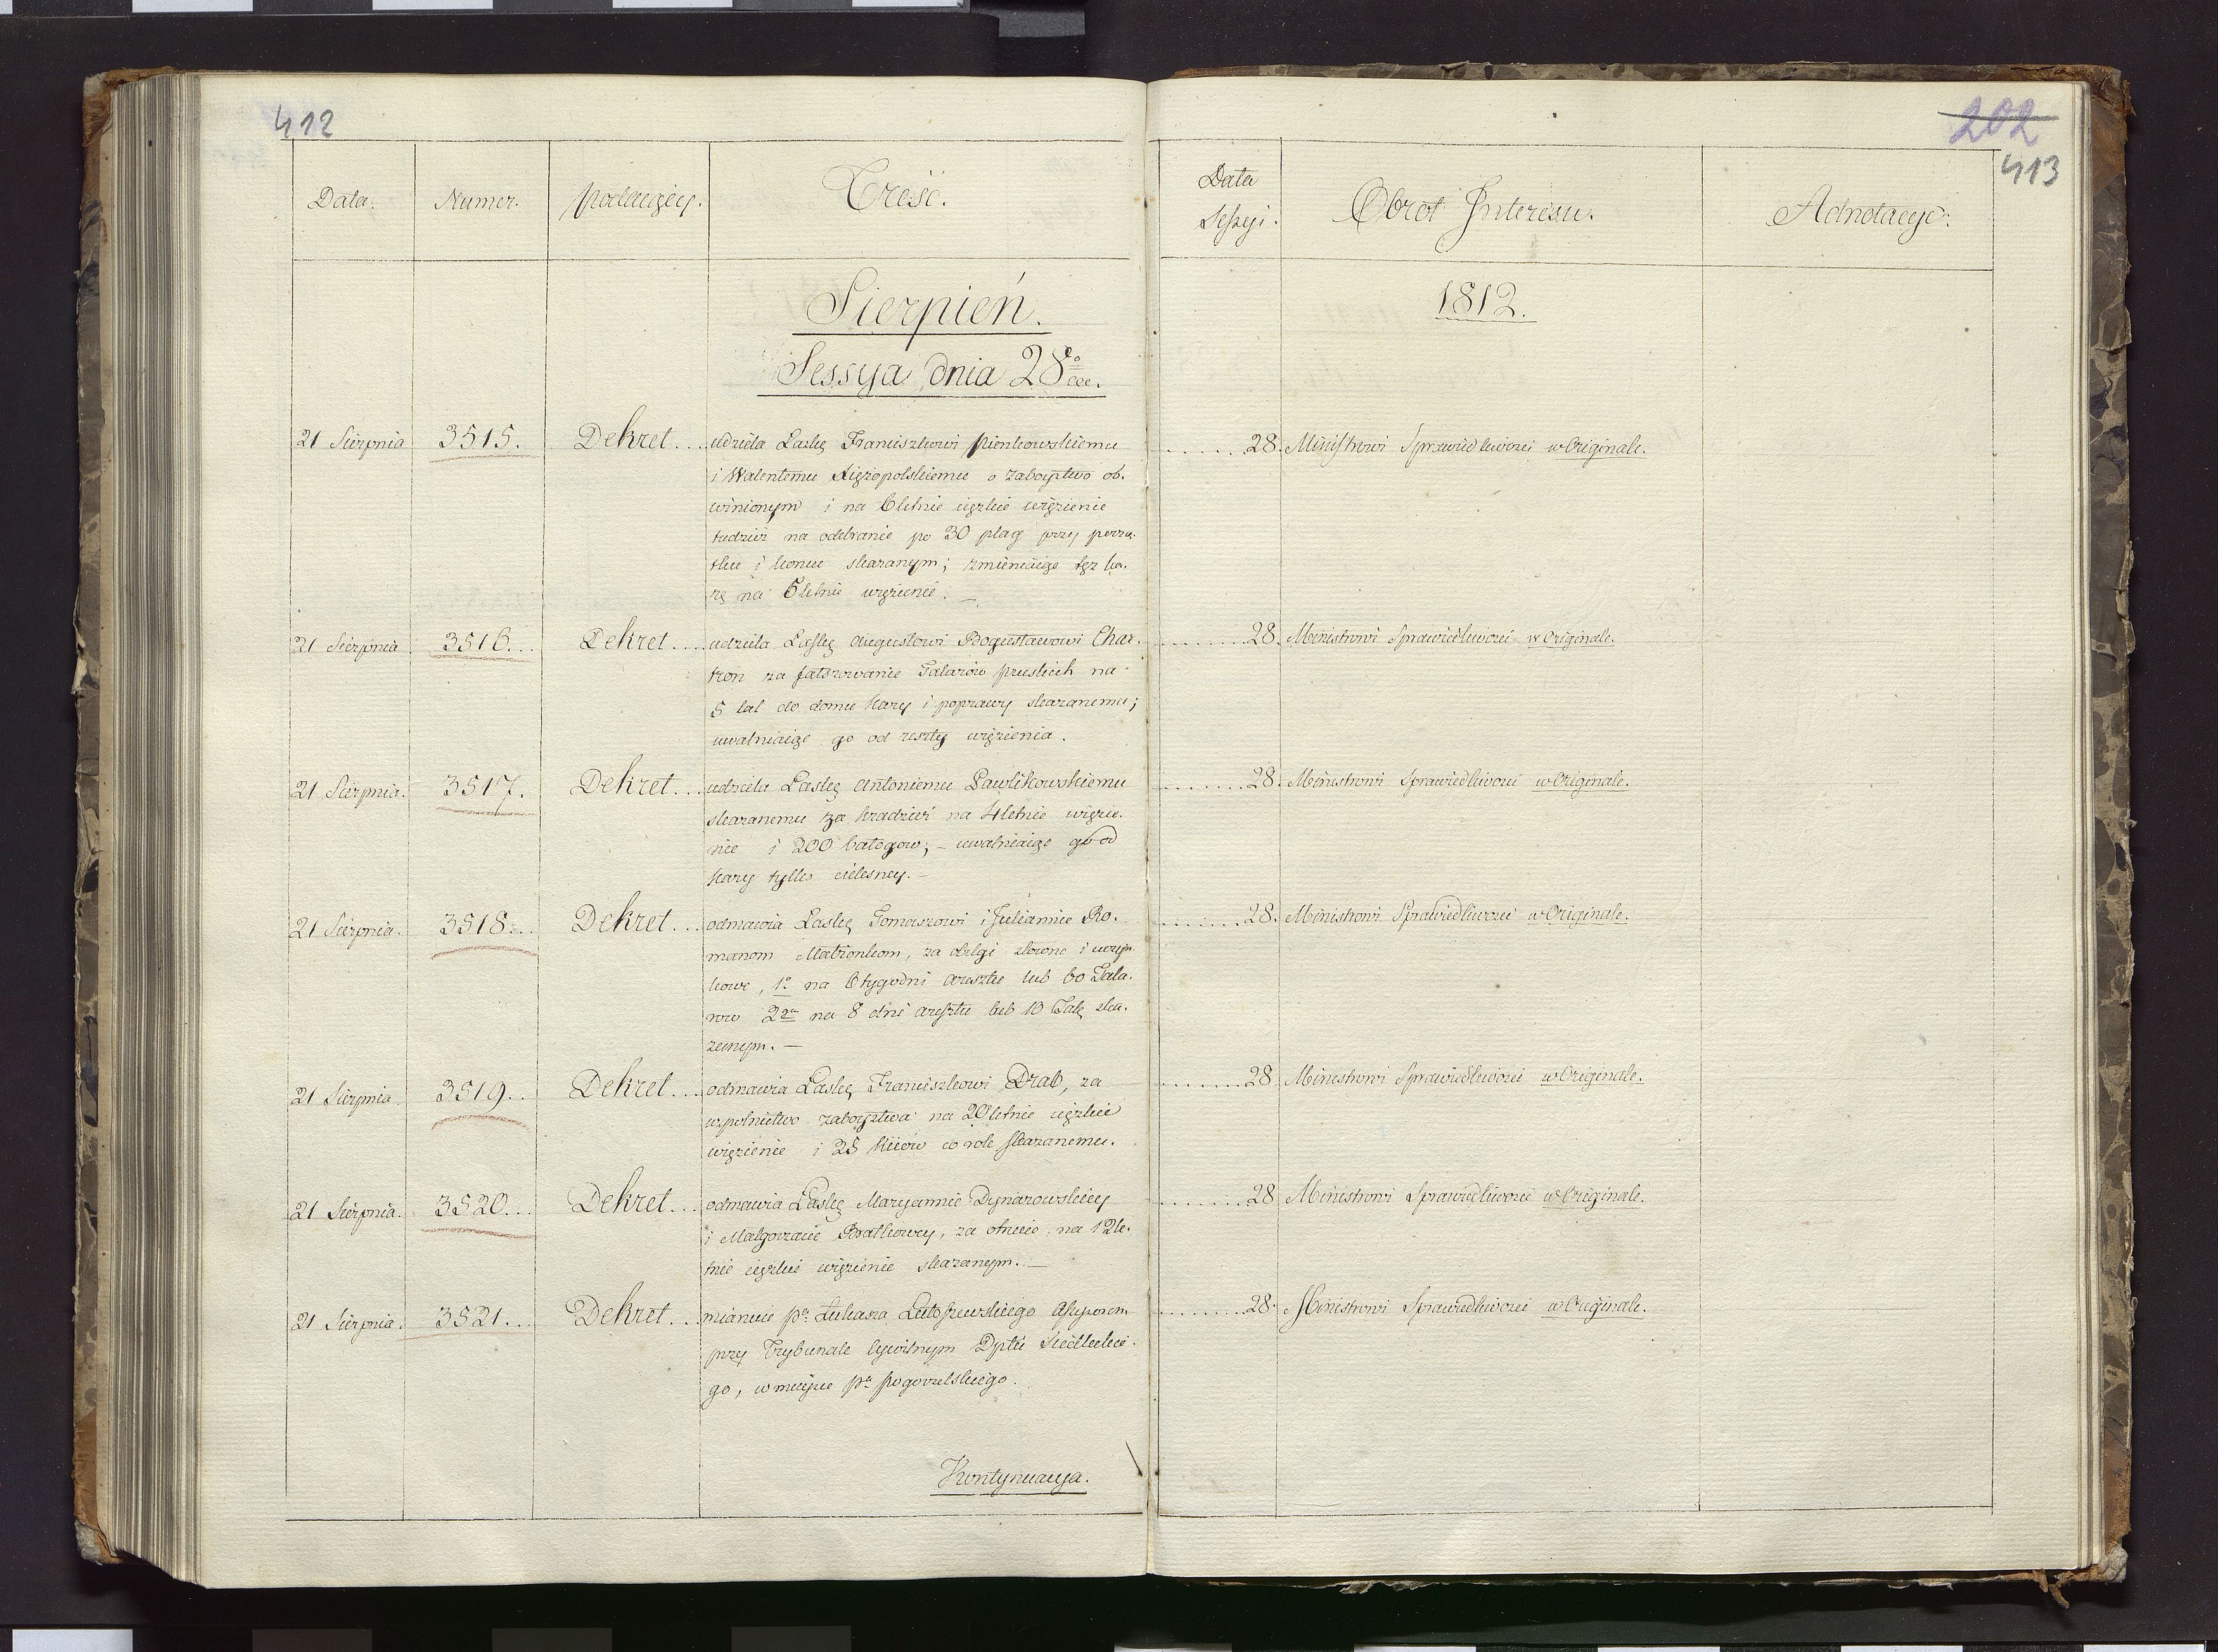 412
202
413
Data. Numer. Podaiący. Treść. Data Sessyi. Obrot Interesu. Adnotacye.
Sierpień. 1812.
Sessya dnia 28go
21 Sierpnia 3515. Dekret... udziela Łaskę Franciszkowi Pienkowskiemu ......28. Ministrowi Sprawiedliwości w Originale.
i Walentemu Xiężopolskiemu o zaboystwo ob-
winionym i na 6letnie ciężkie więzienie
tudzież na odebranie po 30 plag przy począ-
tku i końcu skazanym; zmieniaiąc tęż ka-
rę na 5letnie więzienie. —
21 Sierpnia 3516... Dekret... udziela Łaskę Augustowi Bogusławowi Char- ......28. Ministrowi Sprawiedliwości w Originale.
tron za fałszowanie Talarów pruskich na
5 lat do domu kary i poprawy skazanemu;
uwalniaiąc go od reszty więzienia.
21 Sierpnia. 3517. Dekret... udziela Łaskę Antoniemu Pawlikowskiemu ......28. Ministrowi Sprawiedliwości w Originale.
skazanemu za kradzież na 4letnie więzie-
nie i 200 batogow; – uwalniaiąc go od
kary tylko cielesney. –
21 Sierpnia. 3518... Dekret... odmawia Łaskę Tomaszowi i Juliannie Ro- ......28. Ministrowi Sprawiedliwości w Originale.
manom Małżonkom, za obelgi słowne i uczyn-
kowe, 1o na 6 tygodni aresztu lub 60 Tala-
row 2ga na 8 dni aresztu lub 10 Tal. ska-
zanym. —
21 Sierpnia. 3519.. Dekret... odmawia Łaskę Franciszkowi Drab, za ......28 Ministrowi Sprawiedliwości w Originale.
wspolnictwo zaboystwa na 20letnie ciężkie
więzienie i 25 kiiów co rok skazanemu.
21 Sierpnia. 3520... Dekret... odmawia Łaskę Maryannie Dynarowskiey ......28 Ministrowi Sprawiedliwości w Originale.
i Małgorzacie Bratkowey, za otrucie, na 12le-
tnie ciężkie więzienie skazanym. —
21 Sierpnia. 3521... Dekret... mianuie Pa Łukasza Lutoszewskiego Assessorem ......28. Ministrowi Sprawiedliwości w Originale.
przy Trybunale Cywilnym Dptu Siedleckie-
go, w mieysce Pa Pogorzelskiego.
Kontynuacya.